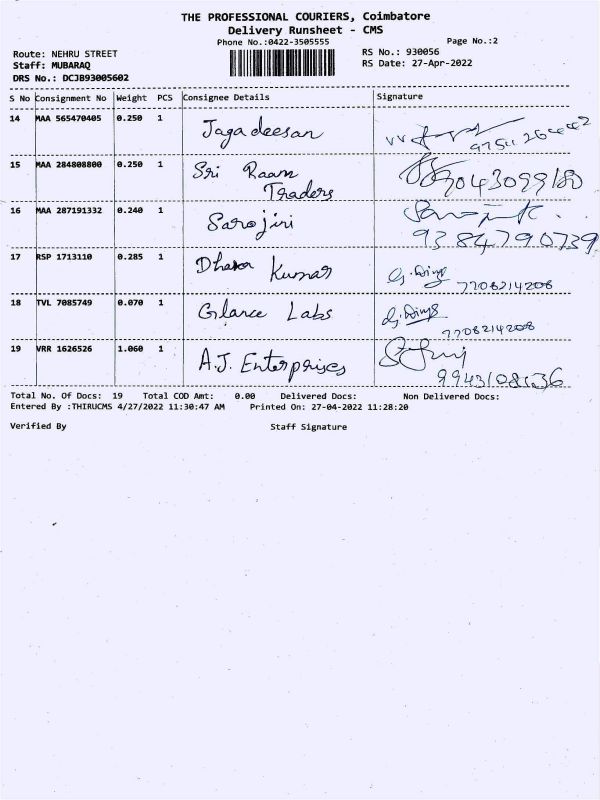 THE PROFESSIONAL COURIERS, Coimbatore
Delivery Runsheet - CMS
Phone No.:0422-3505555
Page No.:2
Route: NEHRU STREET
RS No.: 930056
Staff: MUBARAQ
RS Date: 27-Apr-2022
DRS No.: DCJB93005602
S No Consignment No Weight PCS Consignee Details Signature
14 MAA 565470405 0.250 1 Jagadeesan
15 MAA 284808800 0.250 1 Sri Raam
Traders
9043099180
16 MAA 287191332 0.240 1 Sarojini
9384790739
17 RSP 1713110 0.285 1 Dhana Kumar
7708214208
18 TVL 7085749 0.070 1 Glance Labs
7708214208
19 VRR 1626526 1.060 1 A.J. Enterprises
Total No. Of Docs: 19 Total COD Amt: 0.00 Delivered Docs: Non Delivered Docs:
Entered By :THIRUCMS 4/27/2022 11:30:47 AM Printed On: 27-04-2022 11:28:20
Verified By Staff Signature